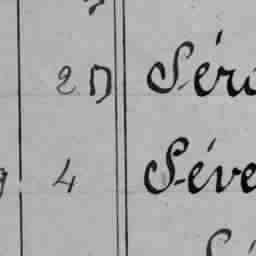 2D Séro
4 Séve